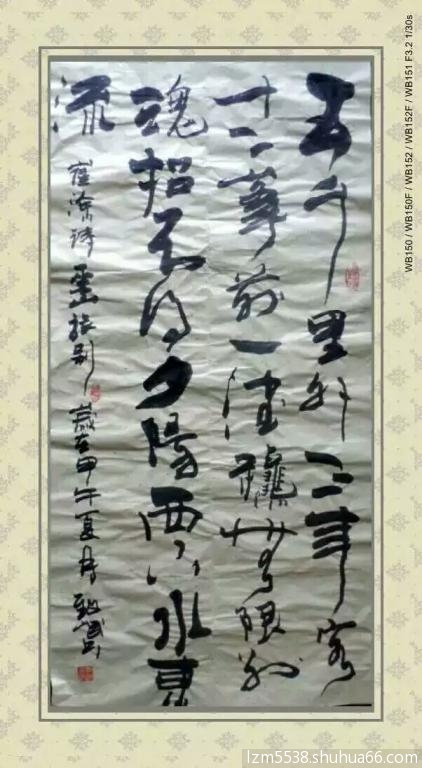 五千里外三年客
十二峯前一望龝無限别
魂招不得夕陽西下水東
流
崔塗詩巫山旅别 歲在甲午夏月
WB150 / WB150F / WB152 / WB152F / WB151 F3.2 1/30s
lzm5538.shuhua66.com